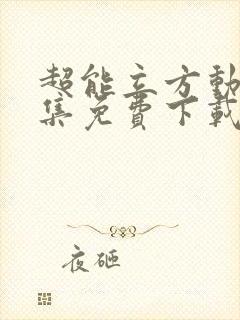 超能立方動
集免費下載
夜砸